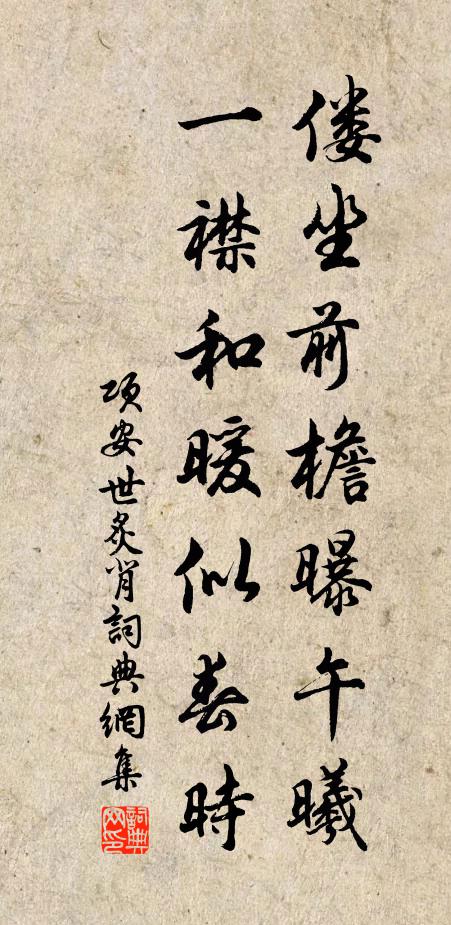 偻坐前檐曝午曦
一襟和暖似春時
项安世炙背詞典網集
詞典網印